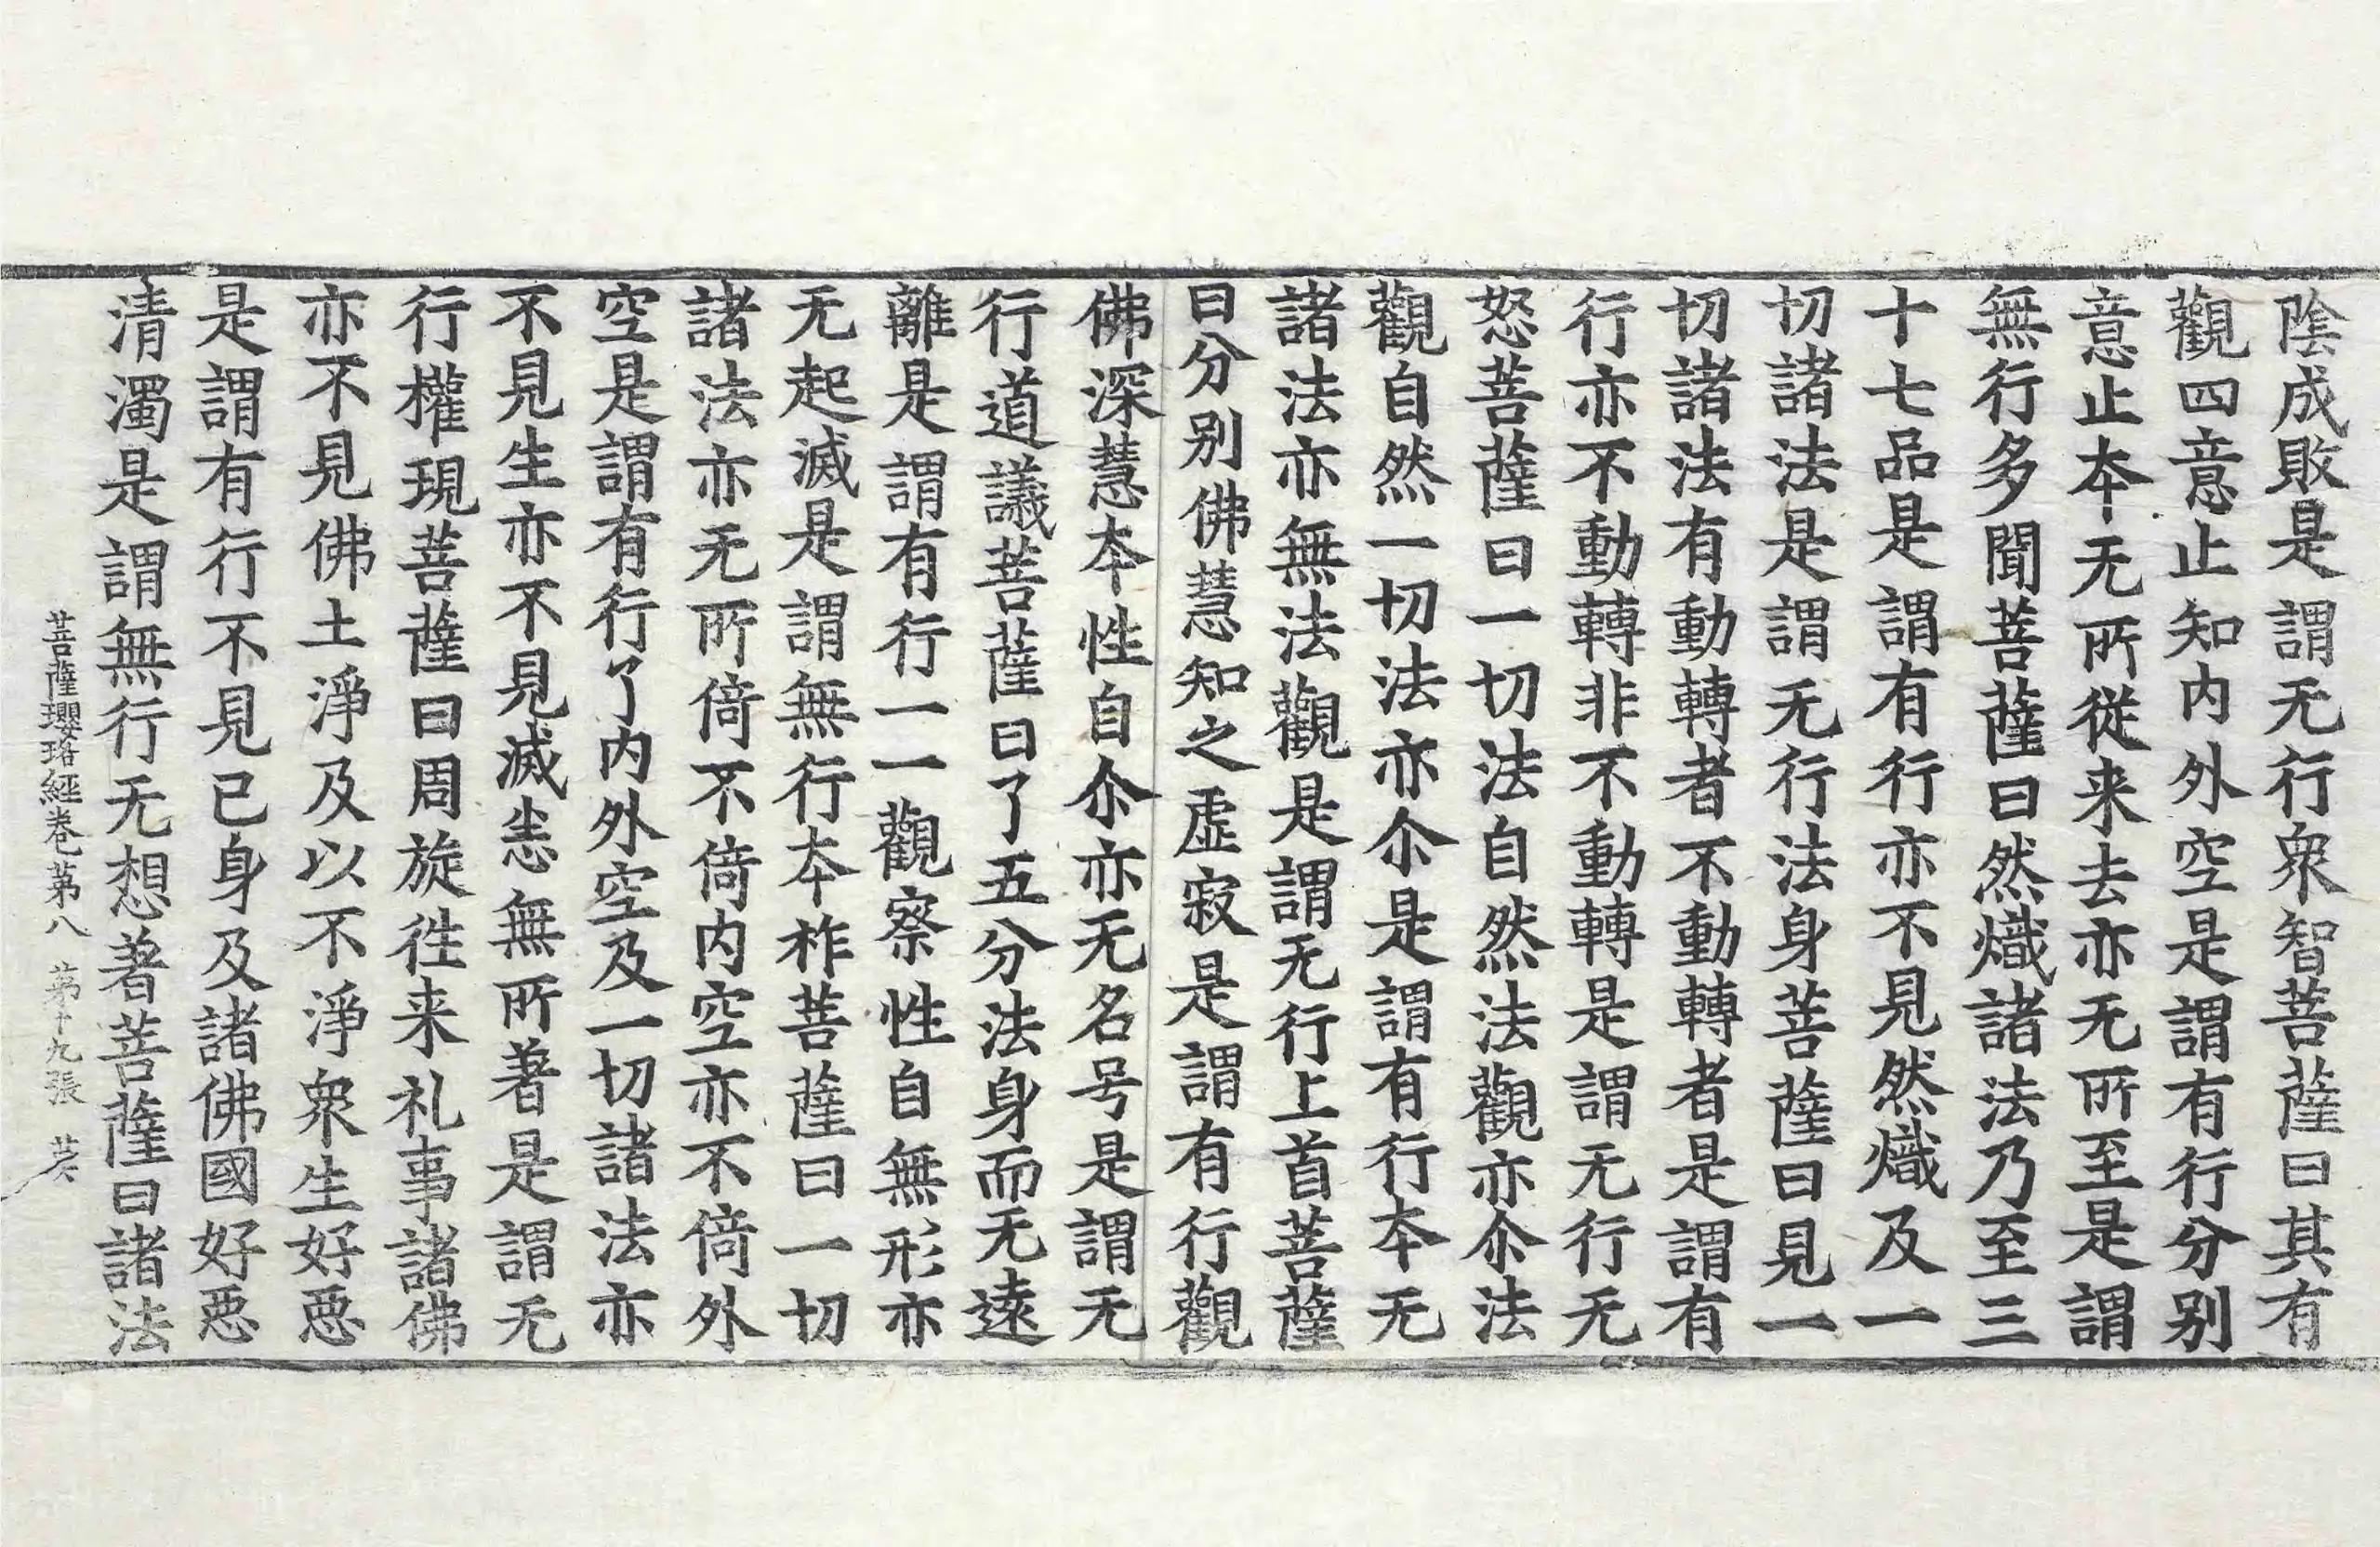 陰成敗是謂无行衆智菩薩曰其有
觀四意止知内外空是謂有行分别
意止夲无所從来去亦无所至是謂
無行多聞菩薩曰然熾諸法乃至三
十七品是謂有行亦不見然熾及一
切諸法是謂无行法身菩薩曰見一
切諸法有動轉者不動轉者是謂有
行亦不動轉非不動轉是謂无行无
怒菩薩曰一切法自然法觀亦尒法
觀自然一切法亦尒是謂有行夲无
諸法亦無法觀是謂无行上首菩薩
曰分别佛慧知之虚寂是謂有行觀
佛深慧夲性自尒亦无名号是謂无
行道議菩薩曰了五分法身而无遠
離是謂有行一一觀察性自無形亦
无起滅是謂無行夲柞菩薩曰一切
諸法亦无所倚不倚内空亦不倚外
空是謂有行了内外空及一切諸法亦
不見生亦不見滅恙無所著是謂无
行權現菩薩曰周旋徃来礼事諸佛
亦不見佛土淨及以不淨衆生好惡
是謂有行不見已身及諸佛國好惡
清濁是謂無行无想著菩薩曰諸法
菩薩瓔珞經卷苐八 苐十九張